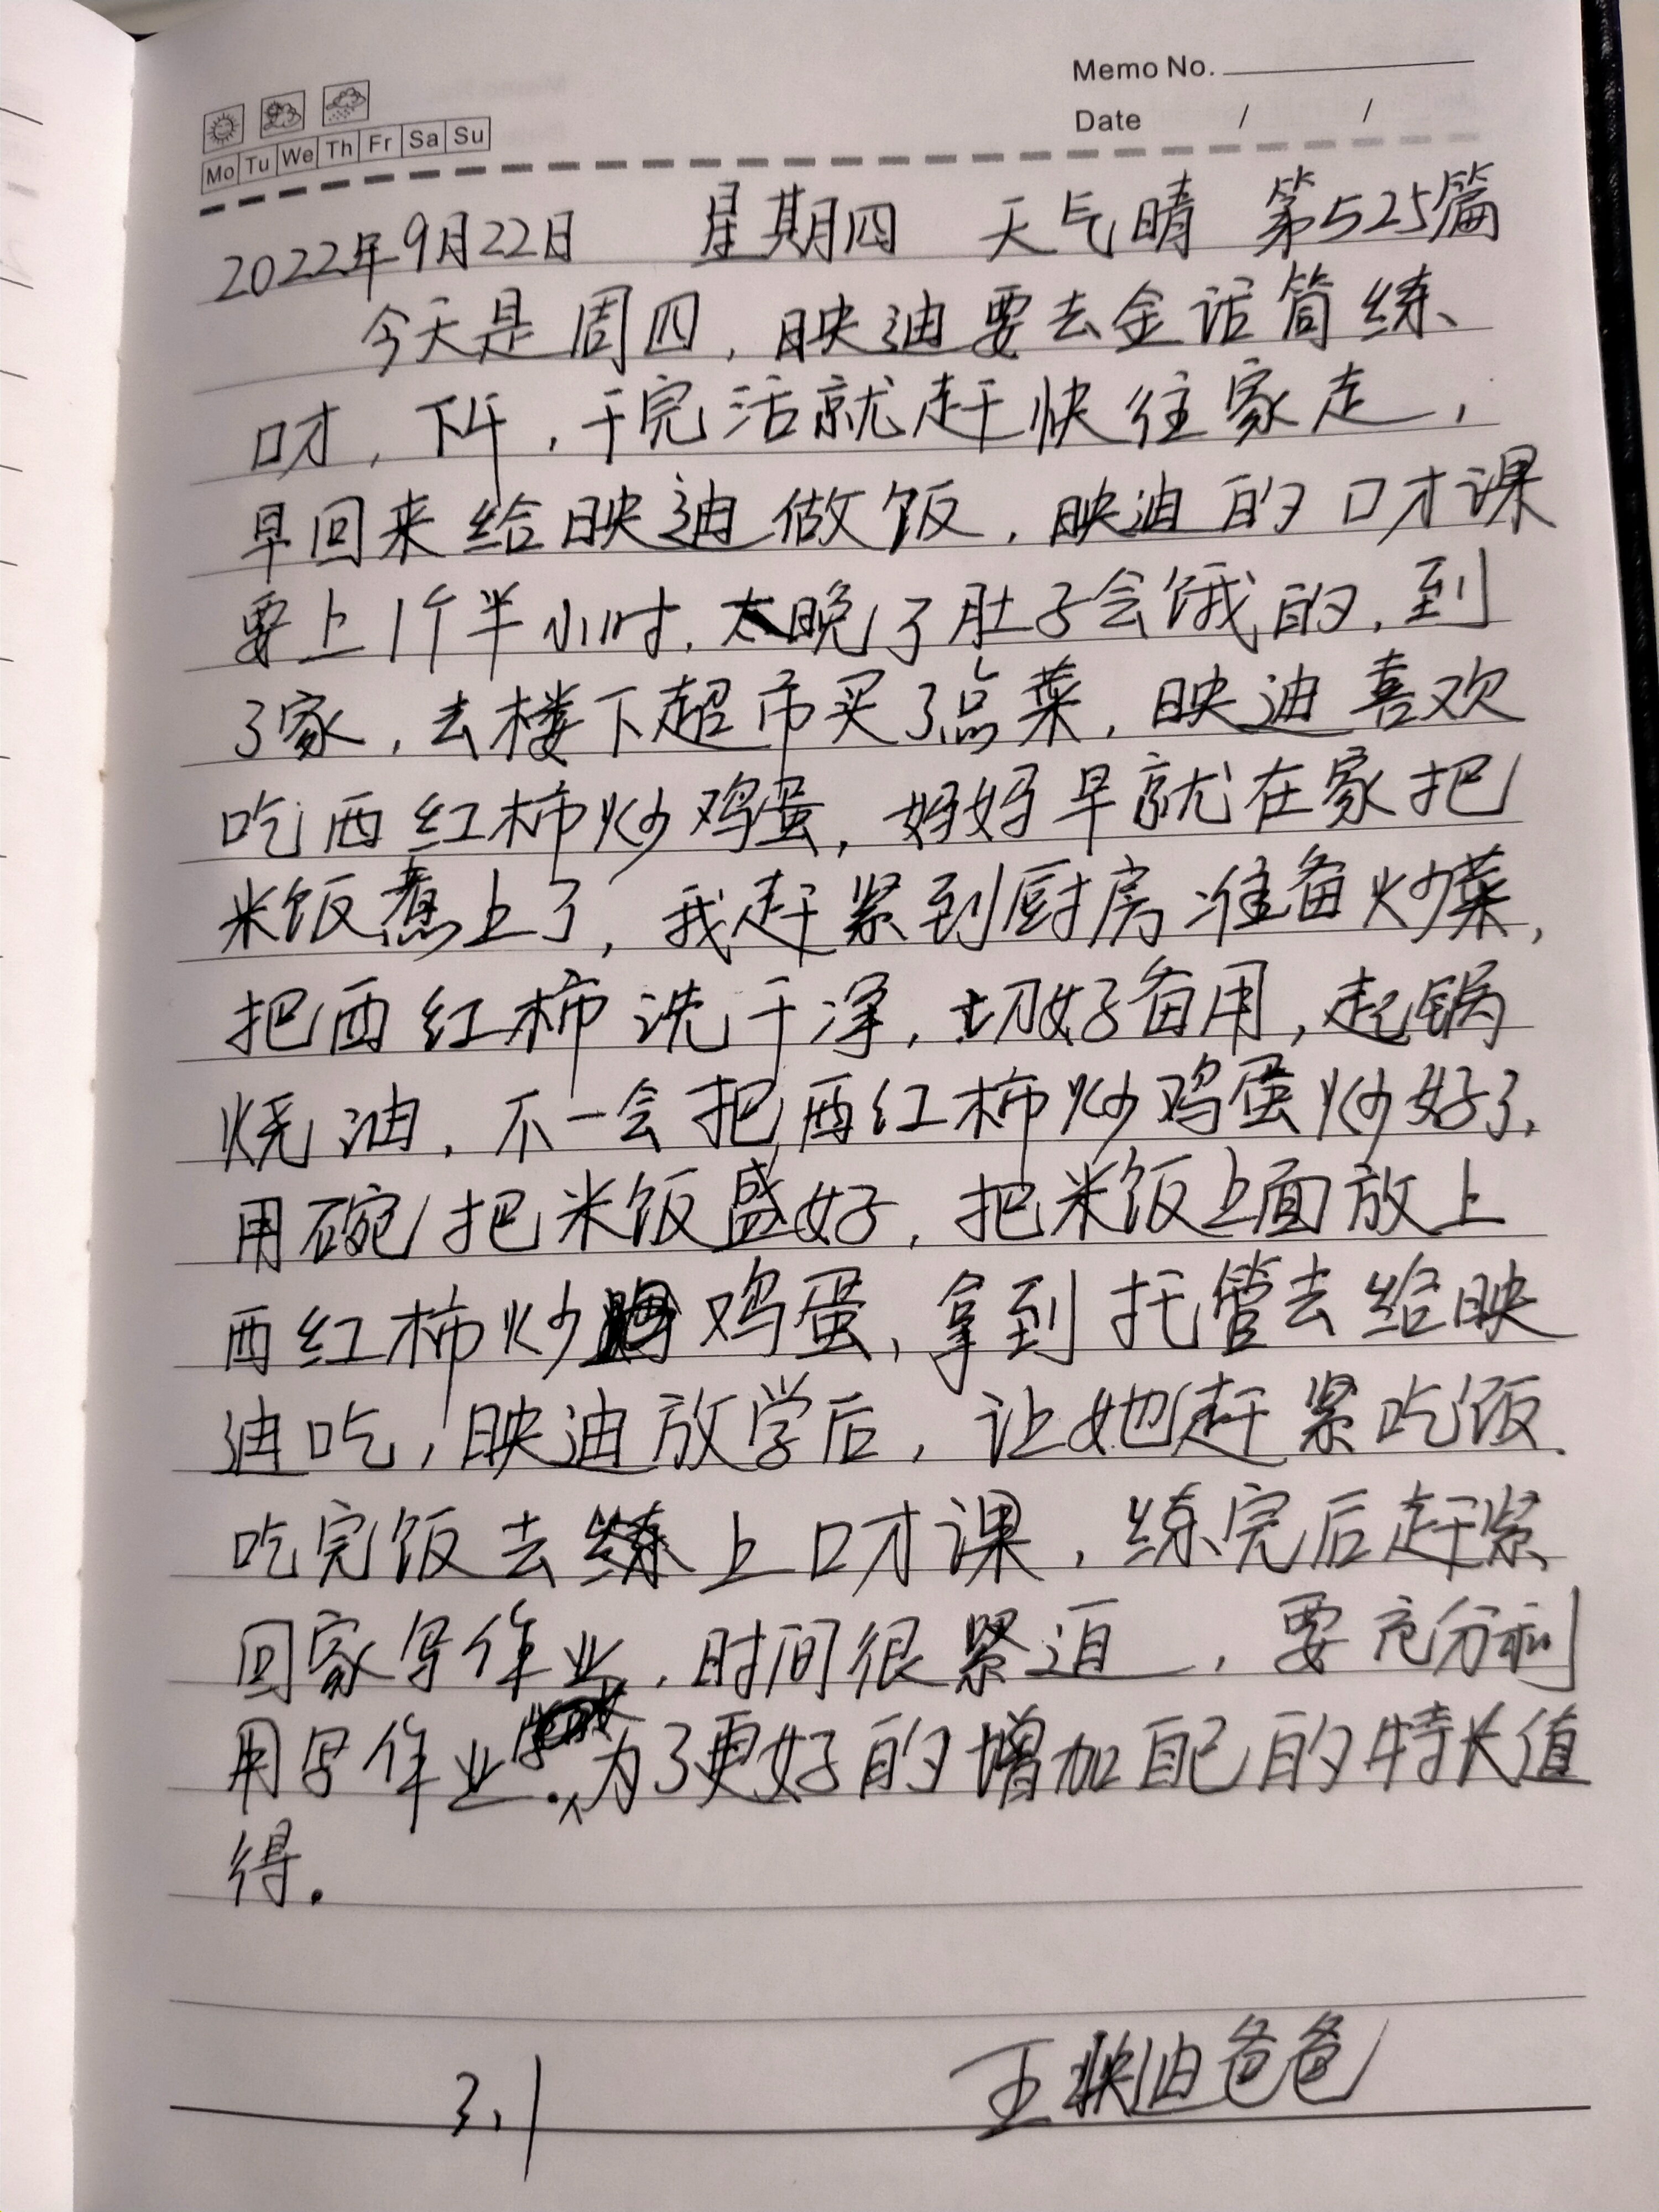 Memo No.
Mo Tu We Th Fr Sa Su
Date / /
2022年9月22日 星期四 天气晴 第525篇
今天是周四，映迪要去金话筒练
口才，下午，干完活就赶快往家走，
早回来给映迪做饭，映迪的口才课
要上1个半小时，太晚了肚子会饿的，到
了家，去楼下超市买了点菜，映迪喜欢
吃西红柿炒鸡蛋，妈妈早就在家把
米饭煮上了，我赶紧到厨房准备炒菜，
把西红柿洗干净，切好备用，起锅
烧油，不一会把西红柿炒鸡蛋炒好了，
用碗把米饭盛好，把米饭上面放上
西红柿炒鸡蛋，拿到托管去给映
迪吃，映迪放学后，让她赶紧吃饭，
吃完饭去上口才课，练完后赶紧
回家写作业，时间很紧迫，要充分利
用写作业。为了更好的增加自己的特长值
得。
3.1 王映迪爸爸